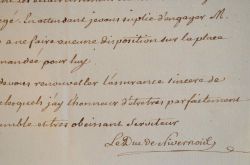 egé. En attendant je vous suplie d'engager M.
a ne faire aucune disposition sur la place
mandée pour luy.
devous renouveller l'assurance sincere de
lesquels jay l'honneur d'etre tres parfaitement
umble et tres obeissant serviteur
Le Duc de Nivernois